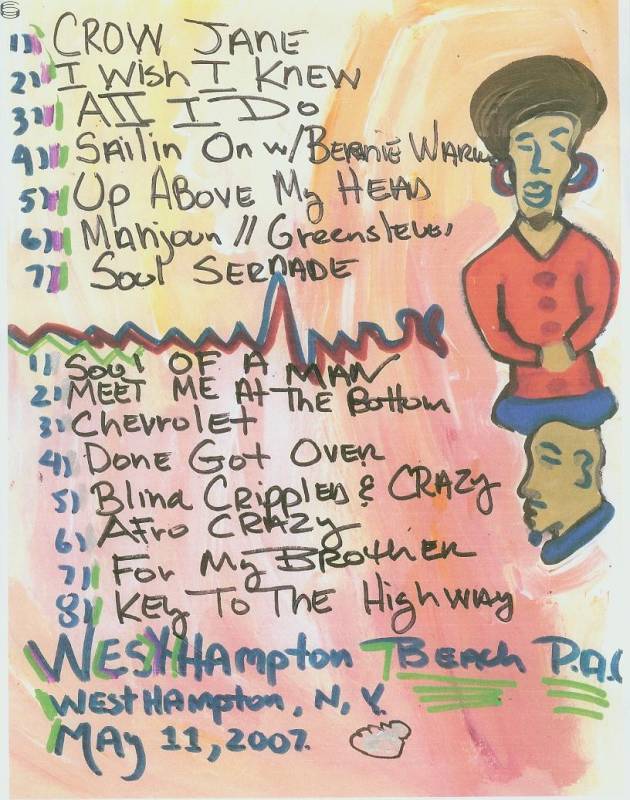 1) CROW JANE
2) I Wish I KNEW
3) All I Do
4) Sailin On w/ BERNIE
5) UP ABOVE My HEAD
6) Mahjoun // Greensleeves
7) Soul SERNADE
1) Soul OF A MAN
2) MEET ME At THE Bottom
3) Chevrolet
4) DONE Got OVER
5) Blind CrippleD & CRAZY
6) AFro CRAZY
7) For My BROTHER
8) KEy To THE HighwAy
WESTHAmpton BEAch P.A.C
WESTHAmpton, N.Y.
MAy 11, 2007.